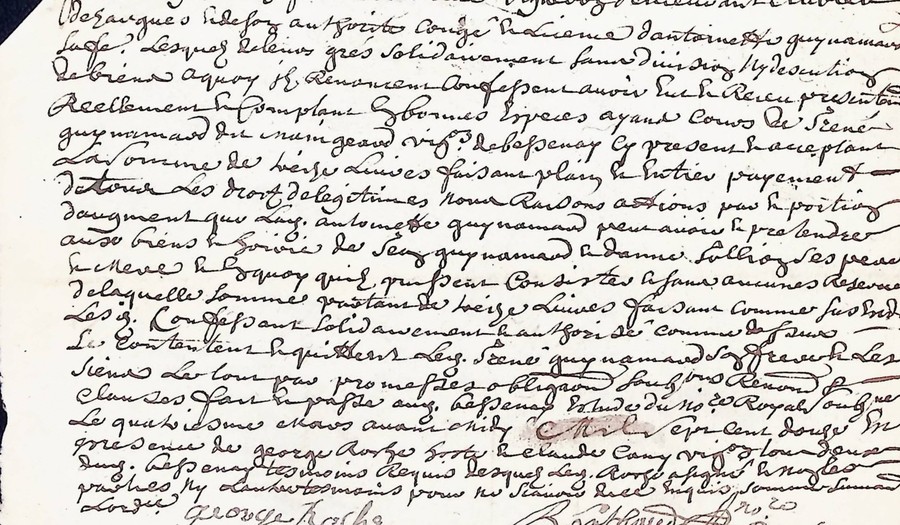 desarques et de son authorité congé et licence d'antoinette guynamard
sa fe.^ Lesquels de leurs gres solidairement sans division Ny discution
de biens a quoy ils Renoncent Confessent avoir Eut et Receu presentem
Reellement et Comptant En bonnes Especes ayant Cours de Sr rené
guynamard dit main geard vig.^on de bessenay Cy present et acceptant
La somme de treize Livres faisant plain et Entier payement
de tous Les droits de legitimes Noms Raisons actions part et portion
daugment que Lad. antoinette guynamard peut avoir et pretendre
aux biens et hoirie de Jean guynamard et danne follion ses pere
et Mere et En quoy quils puissent Consister et sans aucunes Reserve
de laquelle somme portant de treize Livres faisant comme sus est dit
Les d. Confessant solidairement et authorisé comme dessus
Se Contentent et quittent Led. rené guynamard son frere et Les
siens Le tout par promesses obligaon soubs.ons Renon.ons &
clauses fait et passé aud. bessenay Estude du No.re Royal soubs.né
Le quatriesme mars avant midy Mil sept cent douze En
presence de george Roche hoste et claude Cany vig.on tous deux
dud. bessenay tesmoins Requis desquels Led. Roche a signé et Non les
parties Ny Lautre tesmoins pour ne scavoir de ce Enquis sommé suivant
Lordce george Roche